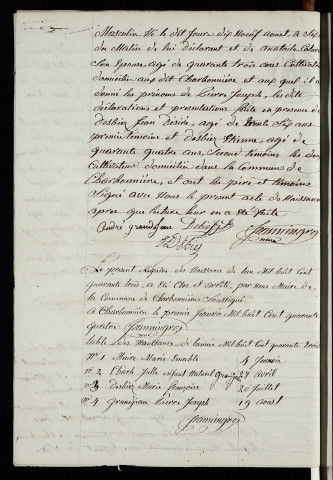 Masculin né le dit jour dix neuf aout, à six
du Matin de lui déclarant et de
Son épouse agé de quarante trois ans Cultivateur
domicilié au dit Charbonnière et auquel il a
donné les prénoms de Pierre Joseph, les dites
déclarations et présentations faite en présence de
desbiez Jean Désiré, agé de trente six ans
premier témoins et desbiez Etienne agé de
quarante quatre ans, second témoins les deux
Cultivateur domicilié dans la Commune de
Charbonnière, et ont les père et témoins
Signé avec Nous le présent acte de Naissance
apres que lecture leur en a été faite
André grandjean
Le présent Registre de Naissance de l'an Mil huit Cent
quarante trois, a été Clos et arrêté, par nous Maire de
la Commune de Charbonnière Soussigné
A Charbonnière le premier Janvier Mil huit Cent quarante
quatre
table des Naissances de l'année Mil huit Cent quarante trois
N° 1 Marie 4 Janvier
N° 2 27 avril
N° 3 Desbiez Marie françoise 20 Juillet
N° 4 Grandjean Pierre Joseph 19 aout